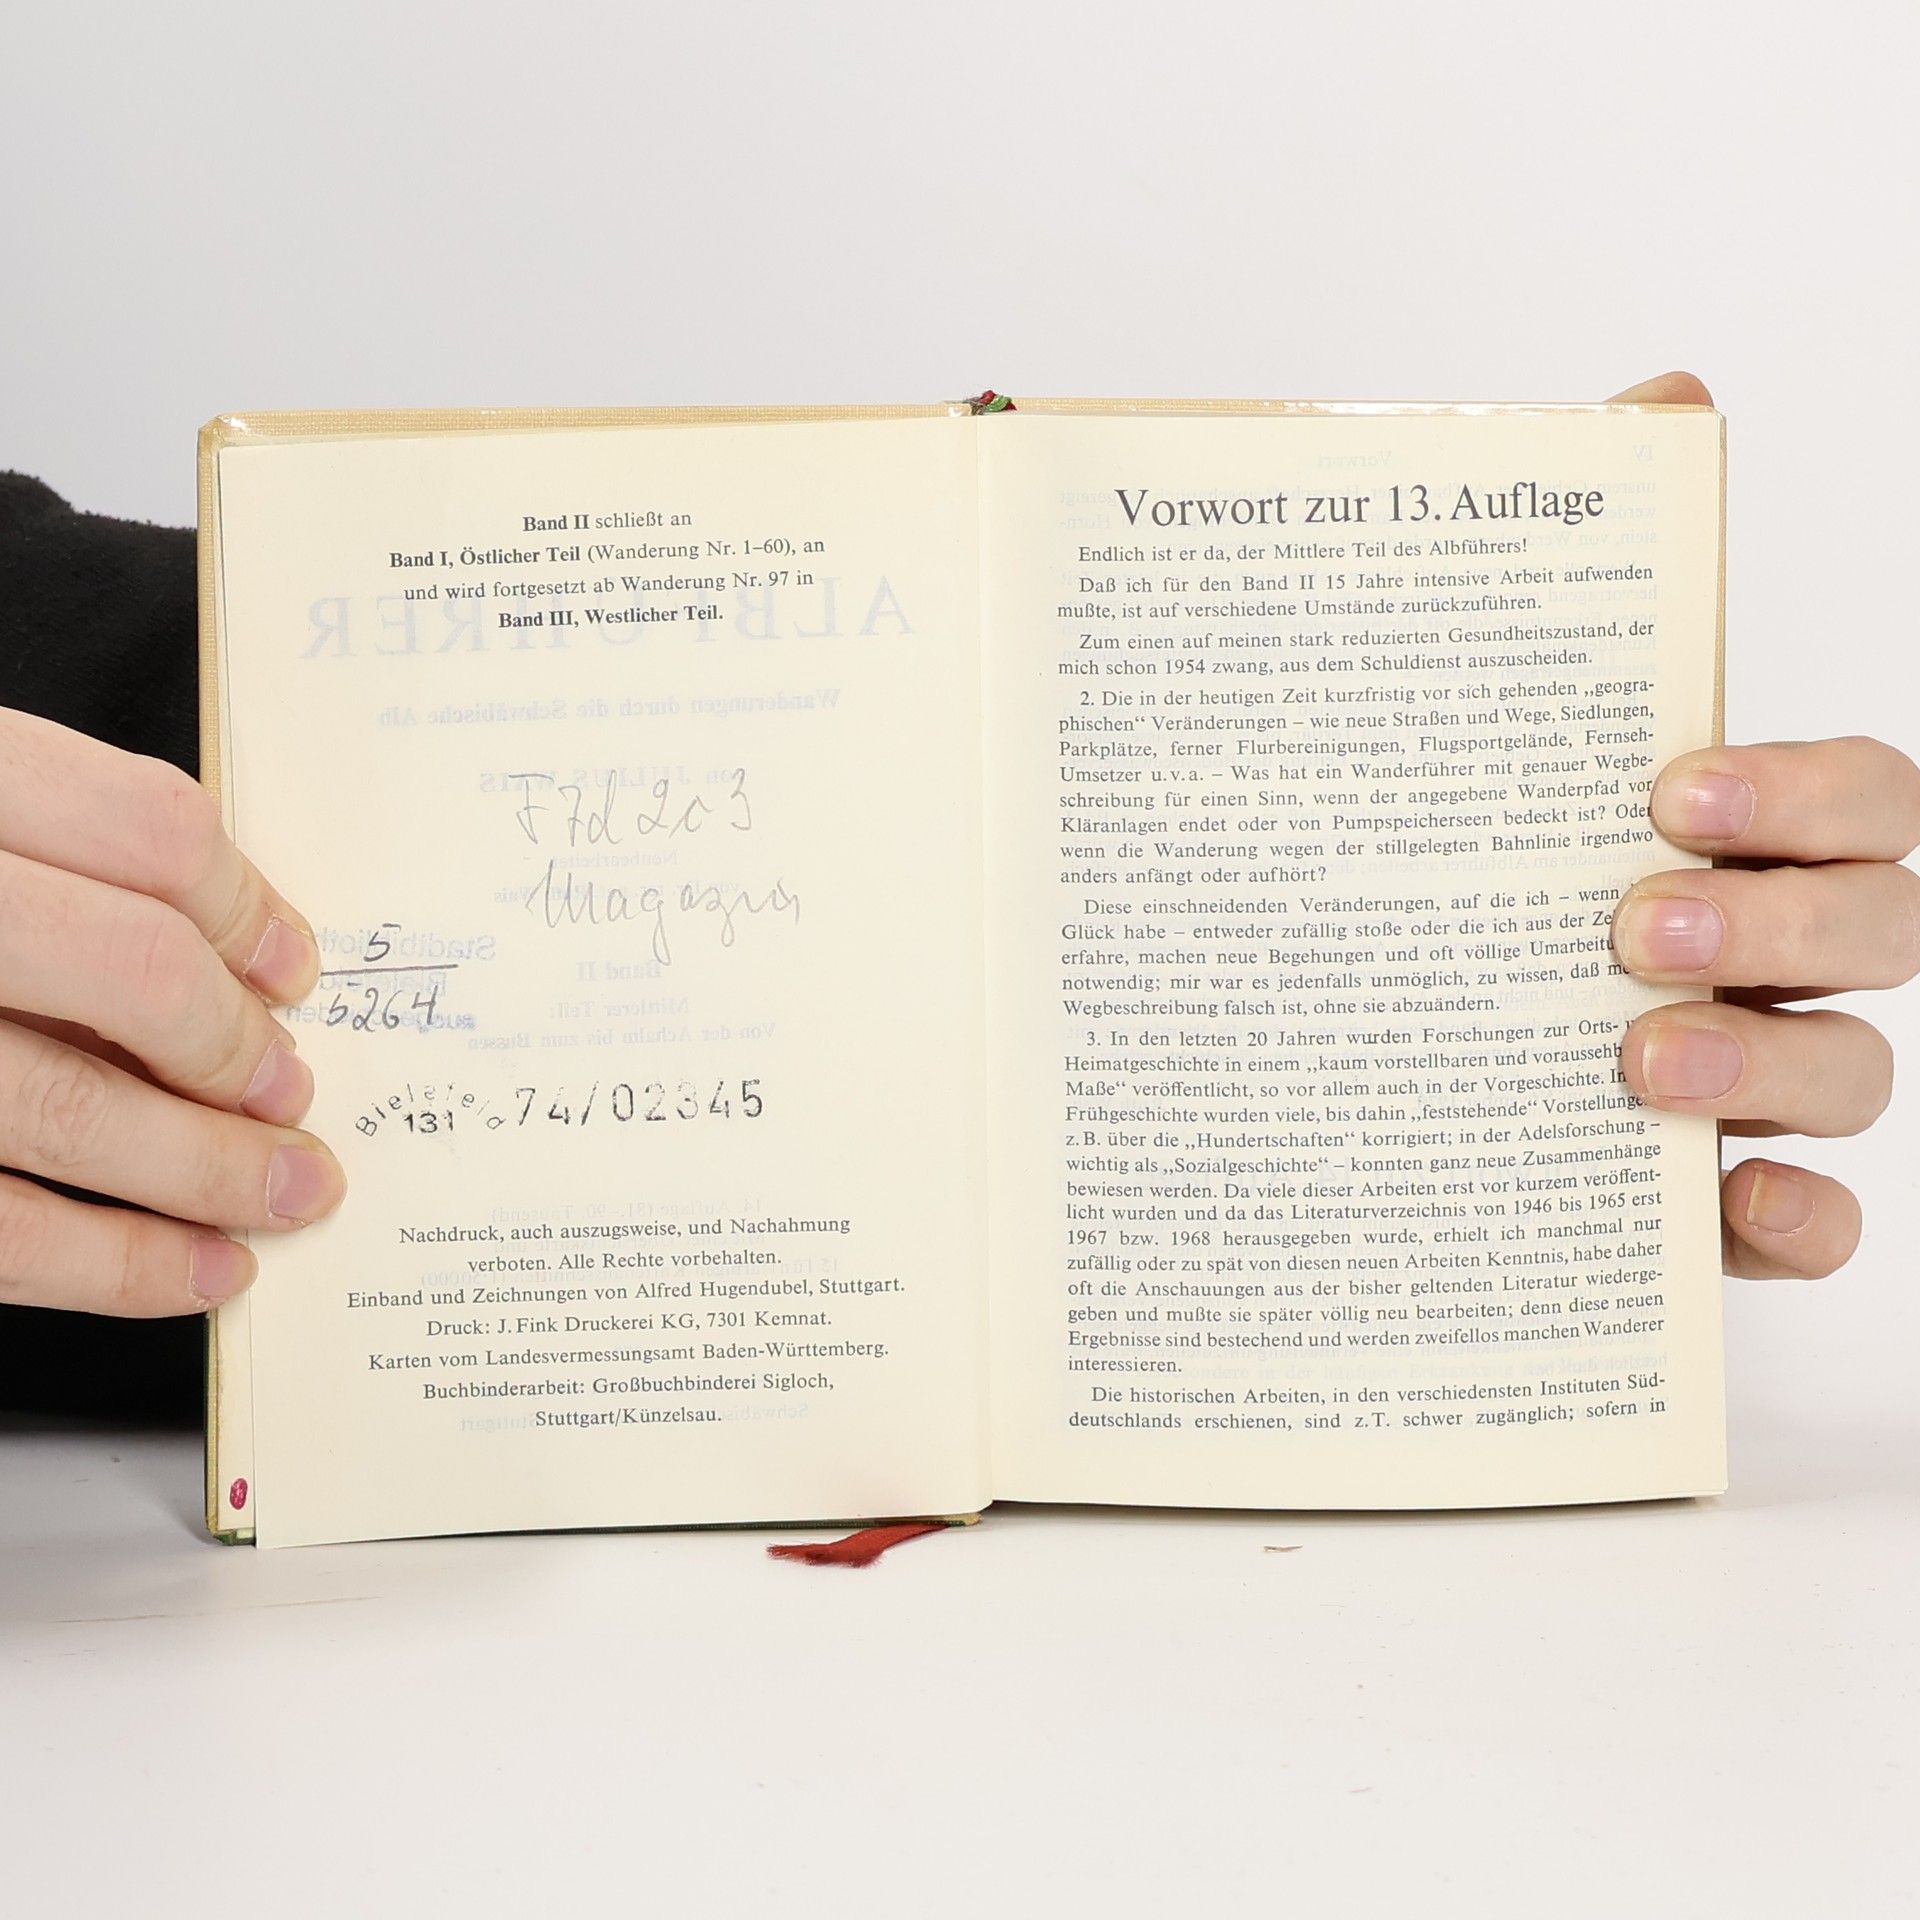 Band II schließt an
Band I, Östlicher Teil (Wanderung Nr. 1–60), an
und wird fortgesetzt ab Wanderung Nr. 97 in
Band III, Westlicher Teil.
F7d 2c3
Magazin
5
5264
Bielefeld
131
74/02345
Nachdruck, auch auszugsweise, und Nachahmung
verboten. Alle Rechte vorbehalten.
Einband und Zeichnungen von Alfred Hugendubel, Stuttgart.
Druck: J. Fink Druckerei KG, 7301 Kemnat.
Karten vom Landesvermessungsamt Baden-Württemberg.
Buchbinderarbeit: Großbuchbinderei Sigloch,
Stuttgart/Künzelsau.
Vorwort zur 13. Auflage
Endlich ist er da, der Mittlere Teil des Albführers!
Daß ich für den Band II 15 Jahre intensive Arbeit aufwenden
mußte, ist auf verschiedene Umstände zurückzuführen.
Zum einen auf meinen stark reduzierten Gesundheitszustand, der
mich schon 1954 zwang, aus dem Schuldienst auszuscheiden.
2. Die in der heutigen Zeit kurzfristig vor sich gehenden „geogra-
phischen“ Veränderungen – wie neue Straßen und Wege, Siedlungen,
Parkplätze, ferner Flurbereinigungen, Flugsportgelände, Fernseh-
Umsetzer u.v.a. – Was hat ein Wanderführer mit genauer Wegbe-
schreibung für einen Sinn, wenn der angegebene Wanderpfad vor
Kläranlagen endet oder von Pumpspeicherseen bedeckt ist? Oder
wenn die Wanderung wegen der stillgelegten Bahnlinie irgendwo
anders anfängt oder aufhört?
Diese einschneidenden Veränderungen, auf die ich – wenn
Glück habe – entweder zufällig stoße oder die ich aus der Ze
erfahre, machen neue Begehungen und oft völlige Umarbeitu
notwendig; mir war es jedenfalls unmöglich, zu wissen, daß me
Wegbeschreibung falsch ist, ohne sie abzuändern.
3. In den letzten 20 Jahren wurden Forschungen zur Orts- u
Heimatgeschichte in einem „kaum vorstellbaren und voraussehb
Maße“ veröffentlicht, so vor allem auch in der Vorgeschichte. In
Frühgeschichte wurden viele, bis dahin „feststehende“ Vorstellunge
z.B. über die „Hundertschaften“ korrigiert; in der Adelsforschung –
wichtig als „Sozialgeschichte“ – konnten ganz neue Zusammenhänge
bewiesen werden. Da viele dieser Arbeiten erst vor kurzem veröffent-
licht wurden und da das Literaturverzeichnis von 1946 bis 1965 erst
1967 bzw. 1968 herausgegeben wurde, erhielt ich manchmal nur
zufällig oder zu spät von diesen neuen Arbeiten Kenntnis, habe daher
oft die Anschauungen aus der bisher geltenden Literatur wiederge-
geben und mußte sie später völlig neu bearbeiten; denn diese neuen
Ergebnisse sind bestechend und werden zweifellos manchen Wanderer
interessieren.
Die historischen Arbeiten, in den verschiedensten Instituten Süd-
deutschlands erschienen, sind z.T. schwer zugänglich; sofern in